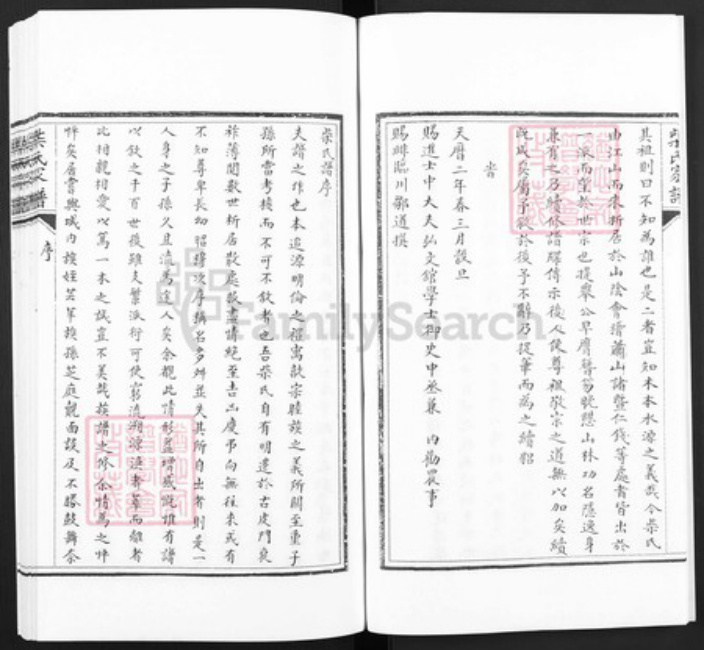 其祖則曰不知為誰也是二者豈知木本水源之義哉今柴氏
由江山而來析居於山陰會稽蕭山諸暨仁錢等處者皆出於
一派而望於世宗也提舉公早膺簪笏晚愬山林功名隱逸身
兼有之乃續修譜牒傳示後人使尊祖敬宗之道無以加矣續
既成矣屬予敘於後予不辭乃援筆而為之續貂
旹
天曆二年春三月穀旦
賜進士中大夫弘文館學士御史中丞兼 內勸農事
賜緋臨川鄒道撰
柴氏家譜
柴氏譜序
夫譜之作也本追源明倫之禮寓敦宗睦族之義所關至重子
孫所當考核而不可不敘者也吾柴氏自有明遷於古虞門衰
祚薄閱數世析居散處散盡請絕至吉凶慶弔向無往來或有
不知尊卑長幼昭穆次序稱名多舛並失其所自出者則是一
人身之子孫久且流為途人矣余覩此情形益增感慨惟有譜
以敘之千百世後雖支繁派衍可使窮流溯源渙者萃而離者
比相親相愛以篤一本之誠豈不美哉族譜之修余情為之怦
怦矣居嘗與城內族姪芸軍族孫芝庭覿面談及不勝鼓舞奈
柴氏家譜
序
FamilySearch